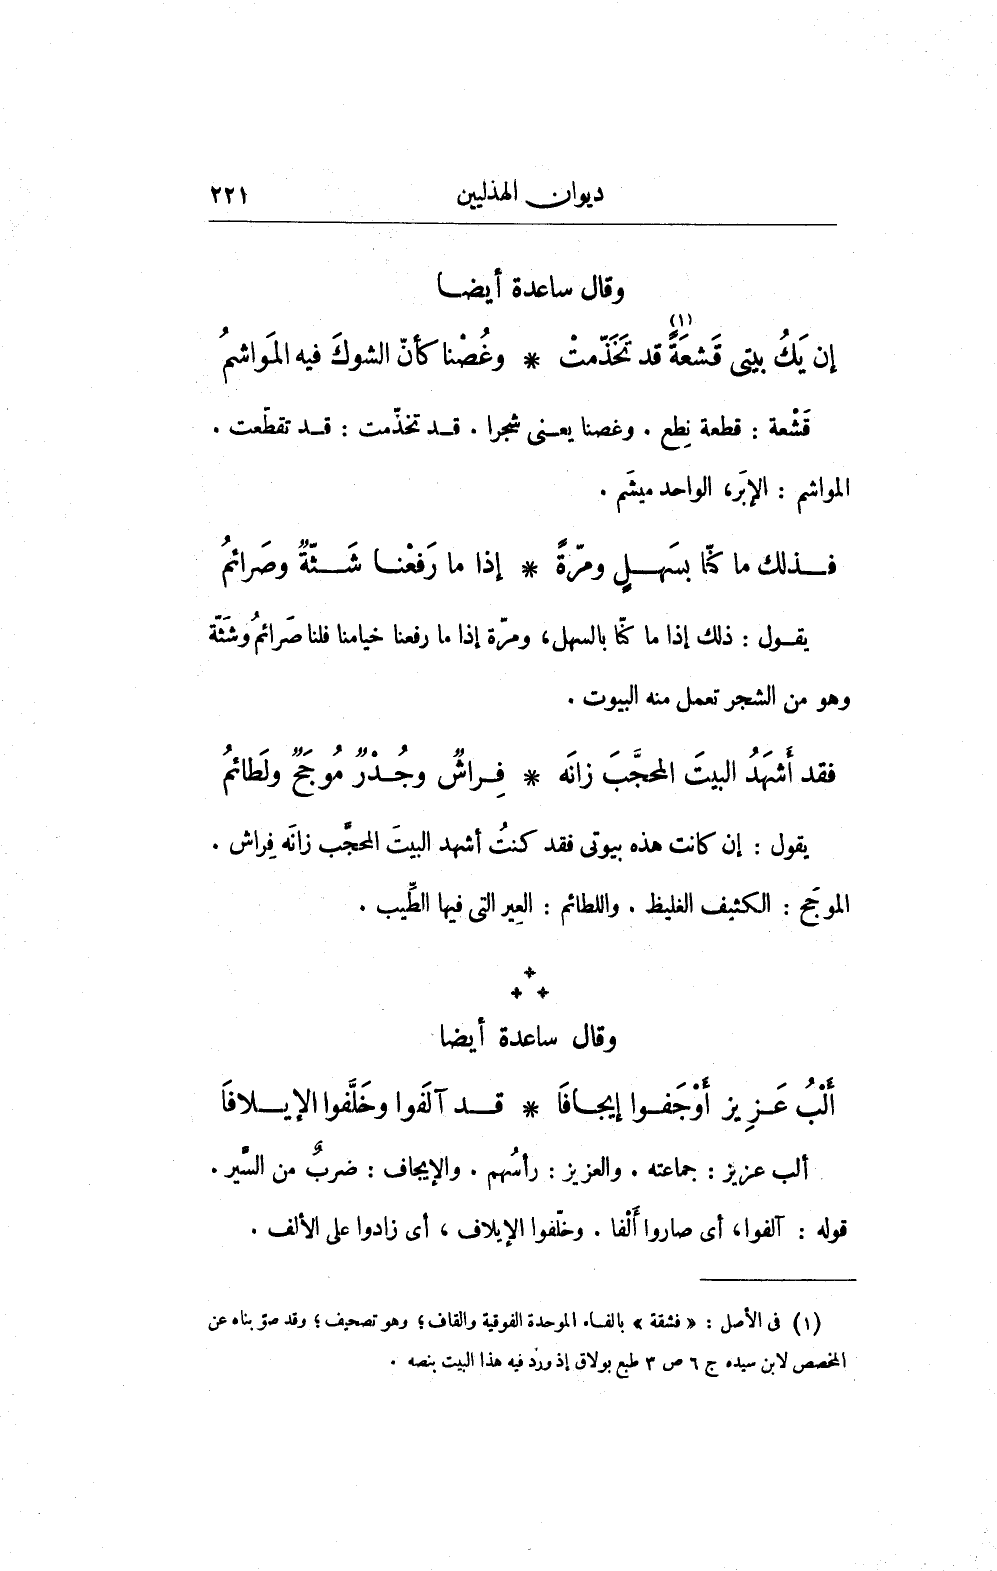 ديوان الهذليين ٢٢١
وقال ساعدة أيضـا
إن يَكُ بيتى قَشعَةً (١) قد تَخَذّمتْ * وغُصْنا كأنّ الشوكَ فيه المَواشمُ
قَشْعة : قطعة نِطع . وغصنا يعـنى شجرا . قـد تخذّمت : قـد تقطّعت .
المواشم : الإبَر، الواحد ميشَم .
فـذلك ما كنّا بسَهـلٍ ومرّةً * إذا ما رَفعْنـا شَـثّةٌ وصَرائمُ
يقـول : ذلك إذا ما كنّا بالسهل، ومرّة إذا ما رفعنا خيامنا فلنا صَرائمُ وشَثّة
وهو من الشجر تعمل منه البيوت .
فقد أَشهَدُ البيتَ المحجَّبَ زانَه * فِـراشٌ وجُـدْرٌ مُوجَحٌ ولَطائمُ
يقول : إن كانت هذه بيوتى فقد كنتُ أشهد البيتَ المحجَّب زانَه فِراش .
الموجَح : الكثيف الغليظ . واللطائم : العِير التى فيها الطِّيب .
وقال ساعدة أيضا
أَلْبُ عَـزِيز أَوْجَفـوا إيجـافَا * قـد آلَفوا وخَلَّفوا الإيـلافَا
ألب عزيز : جماعته . والعزيز : رأسُهم . والإيجاف : ضربٌ من السَّير .
قوله : آلفوا، أى صاروا أَلْفا . وخلّفوا الإيلاف ، أى زادوا على الألف .
(١) فى الأصل : « فشقة » بالفـاء الموحدة الفوقية والقاف؛ وهو تصحيف؛ وقد صوّبناه عن
المخصص لابن سيده ج ٦ ص ٣ طبع بولاق إذ ورد فيه هذا البيت بنصه .